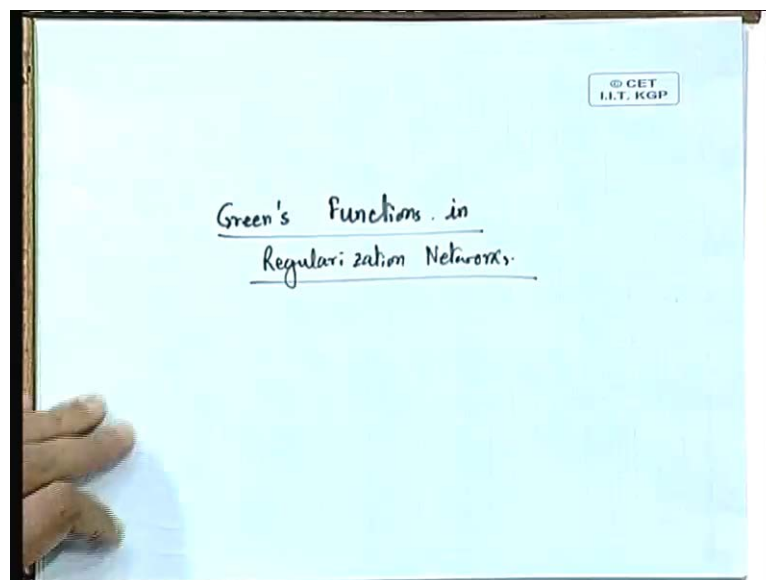 © CET
I.I.T. KGP
Green's Functions in
Regularization Networks.